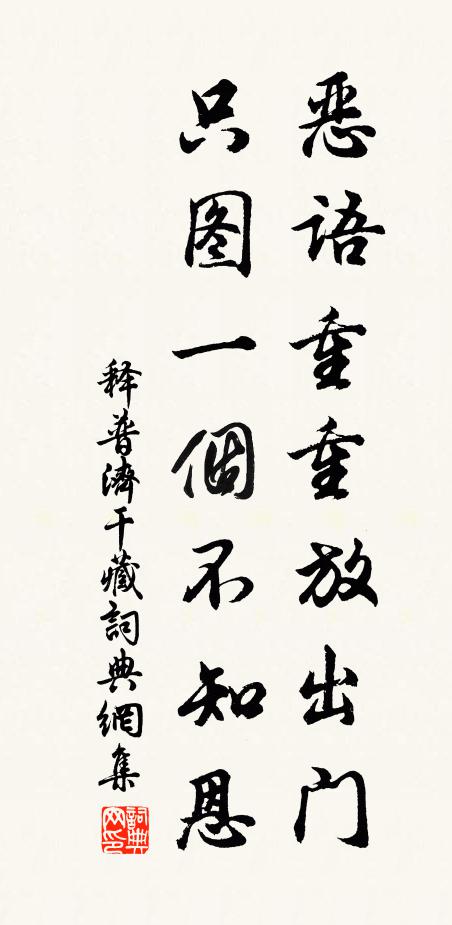 恶语重重放出门
只图一個不知恩
释普濟千藏詞典網集
詞典网印